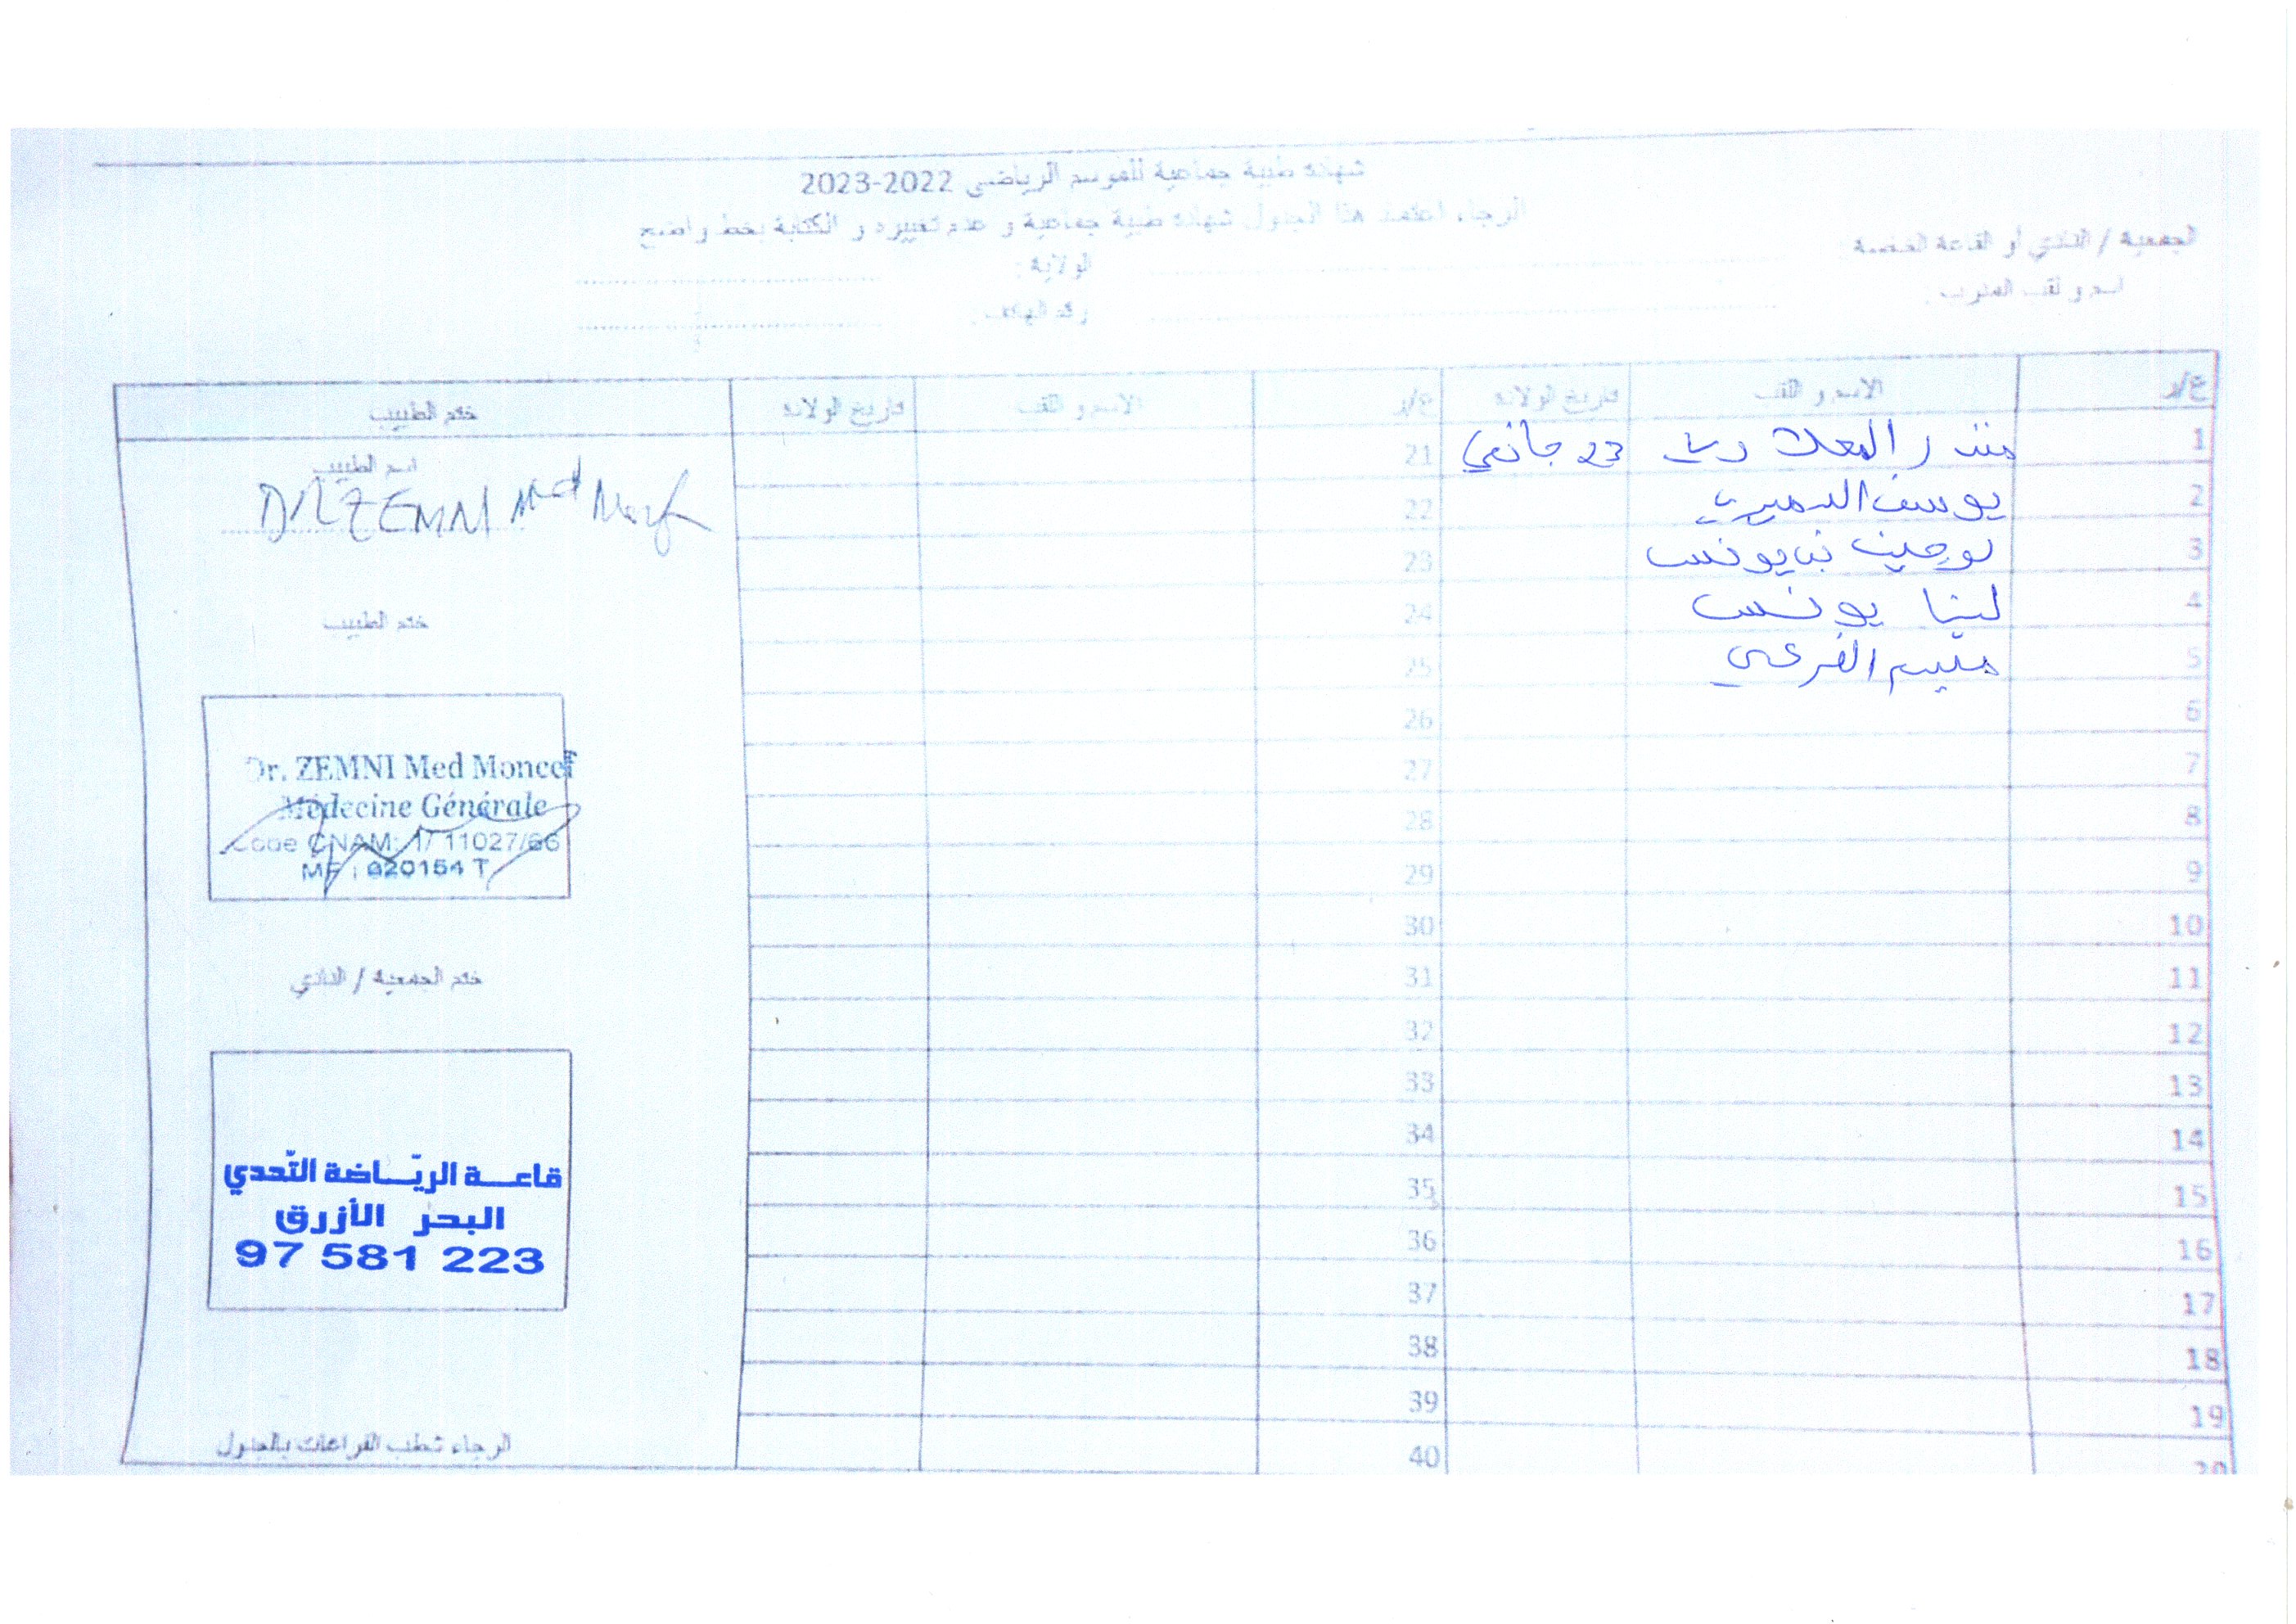 شهادة طبية جماعية للموسم الرياضي 2022-2023
الرجاء اعتماد هذا الجدول شهادة طبية جماعية و عدم تغييره و الكتابة بخط واضح
الجمعية / النادي أو القاعة الخاصة :
الولاية :
اسم و لقب المدرب :
رقم الهاتف :
ع/ر الاسم و اللقب تاريخ الولادة ع/ر الاسم و اللقب تاريخ الولادة ختم الطبيب
1 منذر 23 جانفي 21
2 يوسف الدميري 22
3 لوجين بن يونس 23
4 لينا يونس 24
5 25
6 26
7 27
8 28
9 29
10 30
11 31
12 32
13 33
14 34
15 35
16 36
17 37
18 38
19 39
20 40
اسم الطبيب
Dr ZEMNI Med
ختم الطبيب
Dr. ZEMNI Med Moncef
Médecine Générale
Code CNAM: 1/ 11027/66
MF : 920154 T
ختم الجمعية / النادي
قاعة الريّاضة التّحدي
البحر الأزرق
97 581 223
الرجاء شطب الفراغات بالجدول